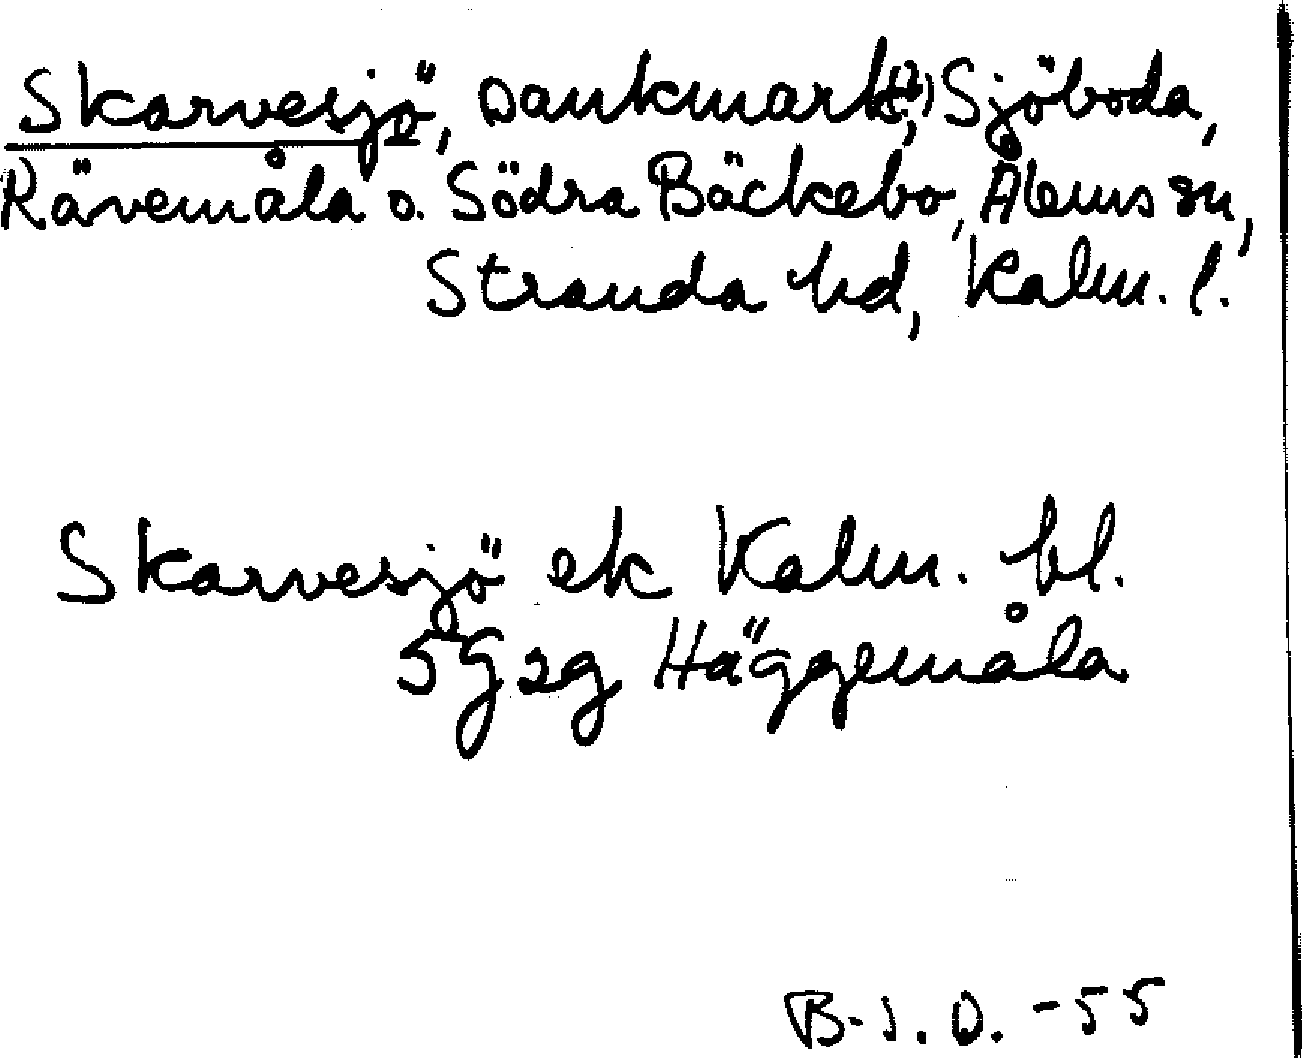 Skarvesjö, Dankmark(?), Sjöboda,
Rävemåla o. Södra Bäckebo, Ålems sn,
Stranda hd, Kalm. l.
Skarvesjö ek Kalm. bl.
5G2g Häggemåla
B-I.D. -55